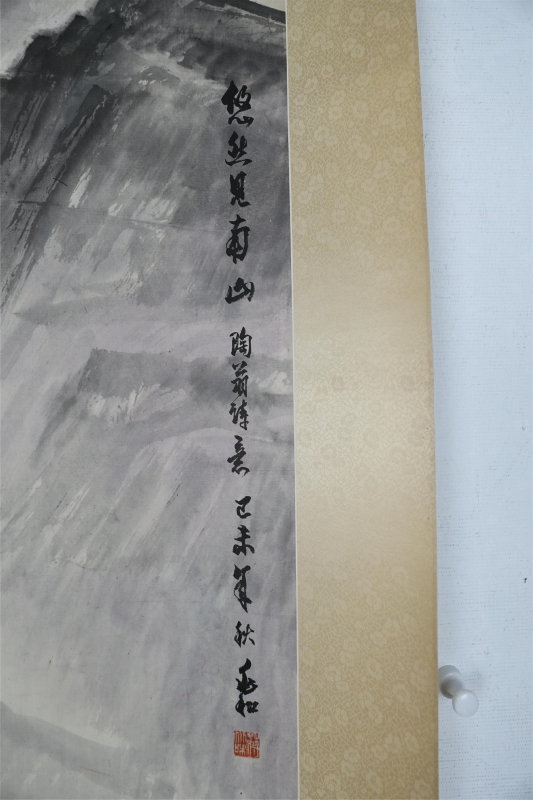 悠然見南山 陶翁詩意 己未年秋